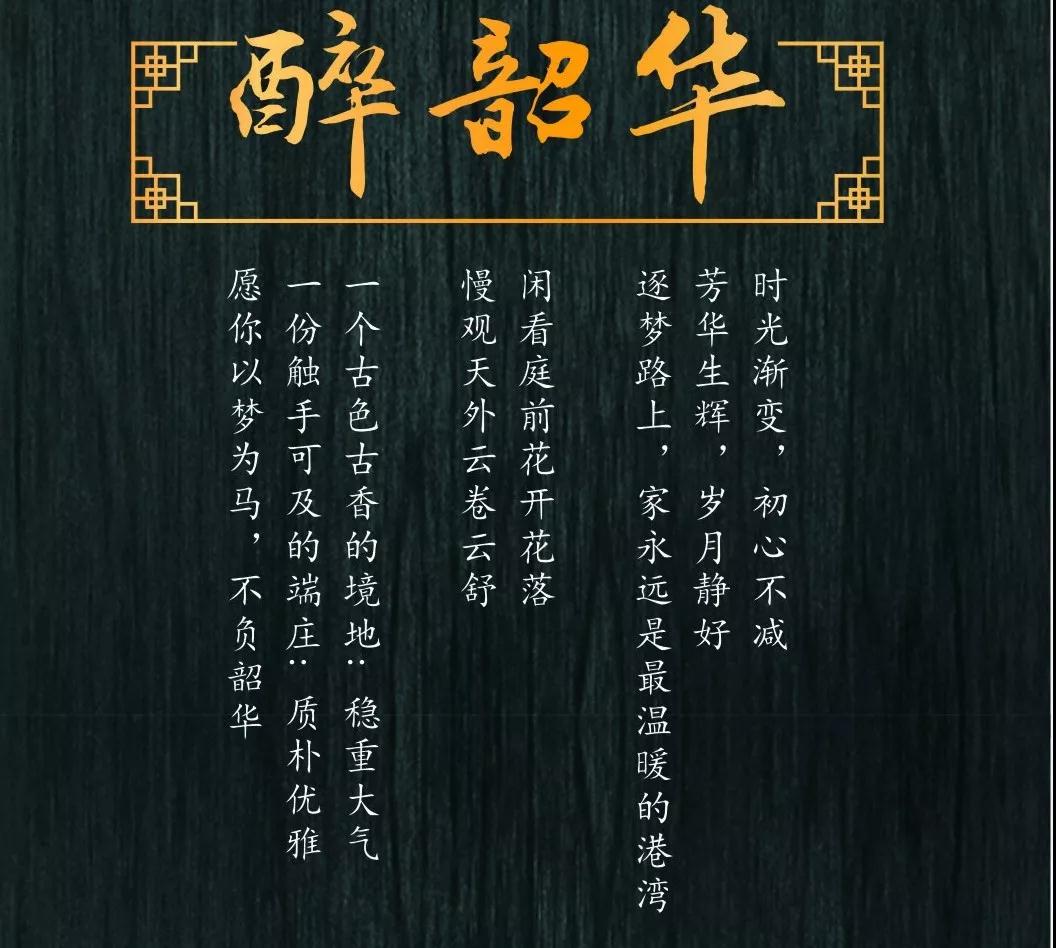 醉韶华
时光渐变，初心不减
芳华生辉，岁月静好
逐梦路上，家永远是最温暖的港湾
闲看庭前花开花落
慢观天外云卷云舒
一个古色古香的境地：稳重大气
一份触手可及的端庄：质朴优雅
愿你以梦为马，不负韶华